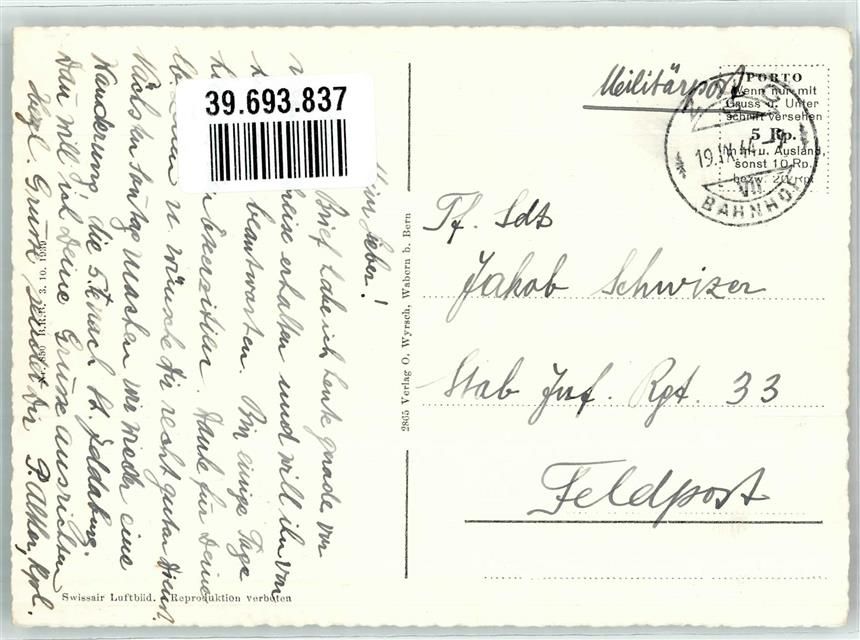 39.693.837
Mein Lieber!
Brief habe ich heute gerade vor
erhalten und will ihn von
beantworten. Bin einige Tage
Danke für Deine
u. wünsche Dir recht guten Dienst.
Nächsten Sonntag machen wir wieder eine
Wanderung, die 5. nach
Dann will ich Deine Grüsse ausrichten
Grüsse sendet Dir P. Kpl.
B.R.B. 3. 10. 1939
Swissair Luftbild. Reproduktion verboten
2865 Verlag O. Wyrsch, Wabern b. Bern
Militärpost
PORTO
Wenn nur mit
Gruss u. Unter
schrift versehen
5 Rp.
Inl. u. Ausland,
sonst 10 Rp.
bezw. 20 Rp.
19.IX.44
VII
BAHNHOF
Tf. Sdt
Jakob Schwizer
Stab Inf. Rgt. 33
Feldpost